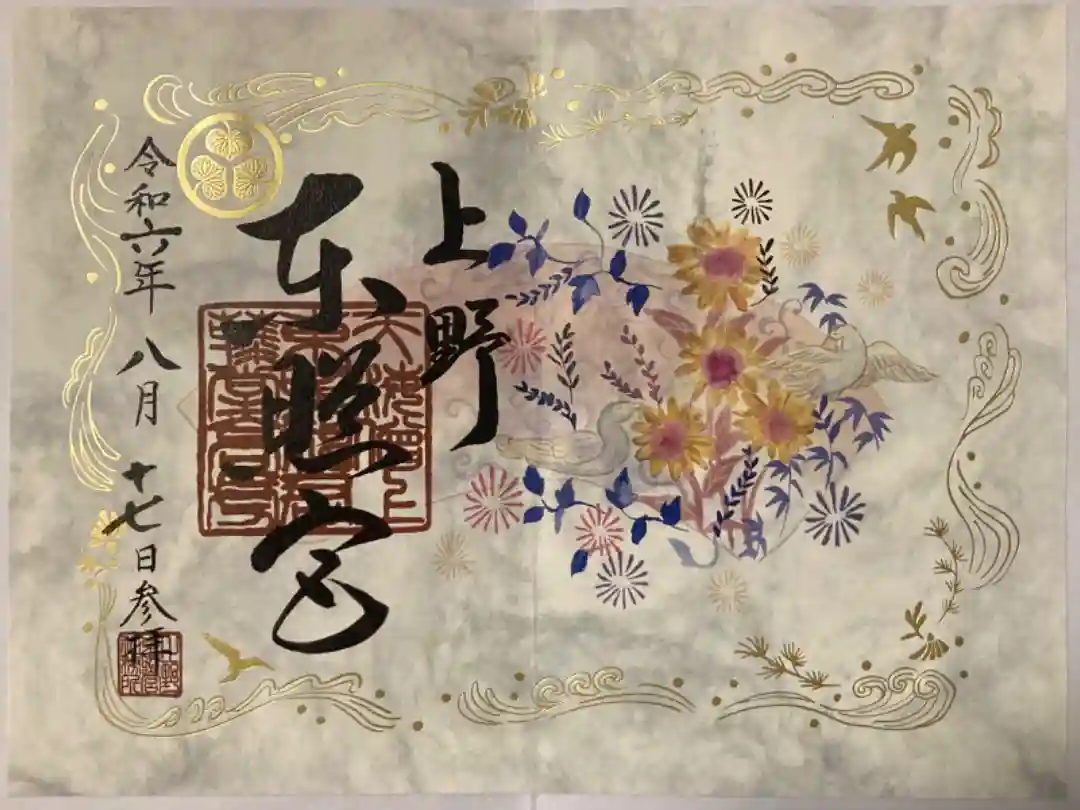 上野
東照宮
令和六年八月十七日参拝